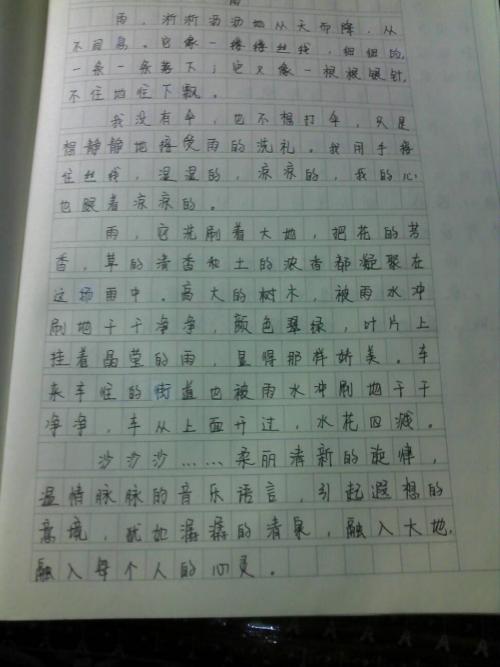 雨
雨,淅淅沥沥地从天而降,从
不间息。它像一缕缕丝线,细细的,
一条一条落下;它又像一根根银针,
不住地往下飘。
我没有伞,也不想打伞,只是
想静静地接受雨的洗礼。我用手接
住丝线,湿湿的,凉凉的,我的心
也跟着凉凉的。
雨,它洗刷着大地,把花的芳
香,草的清香和土的浓香都凝聚在
这场雨中。高大的树木,被雨水冲
刷地干干净净,颜色翠绿,叶片上
挂着晶莹的雨,显得那样娇美。车
来车往的街道也被雨水冲刷地干干
净净,车从上面开过,水花四溅。
沙沙沙……柔丽清新的旋律,
温情脉脉的音乐语言,引起遐想的
意境,犹如潺潺的清泉,融入大地,
融入每个人的心灵。